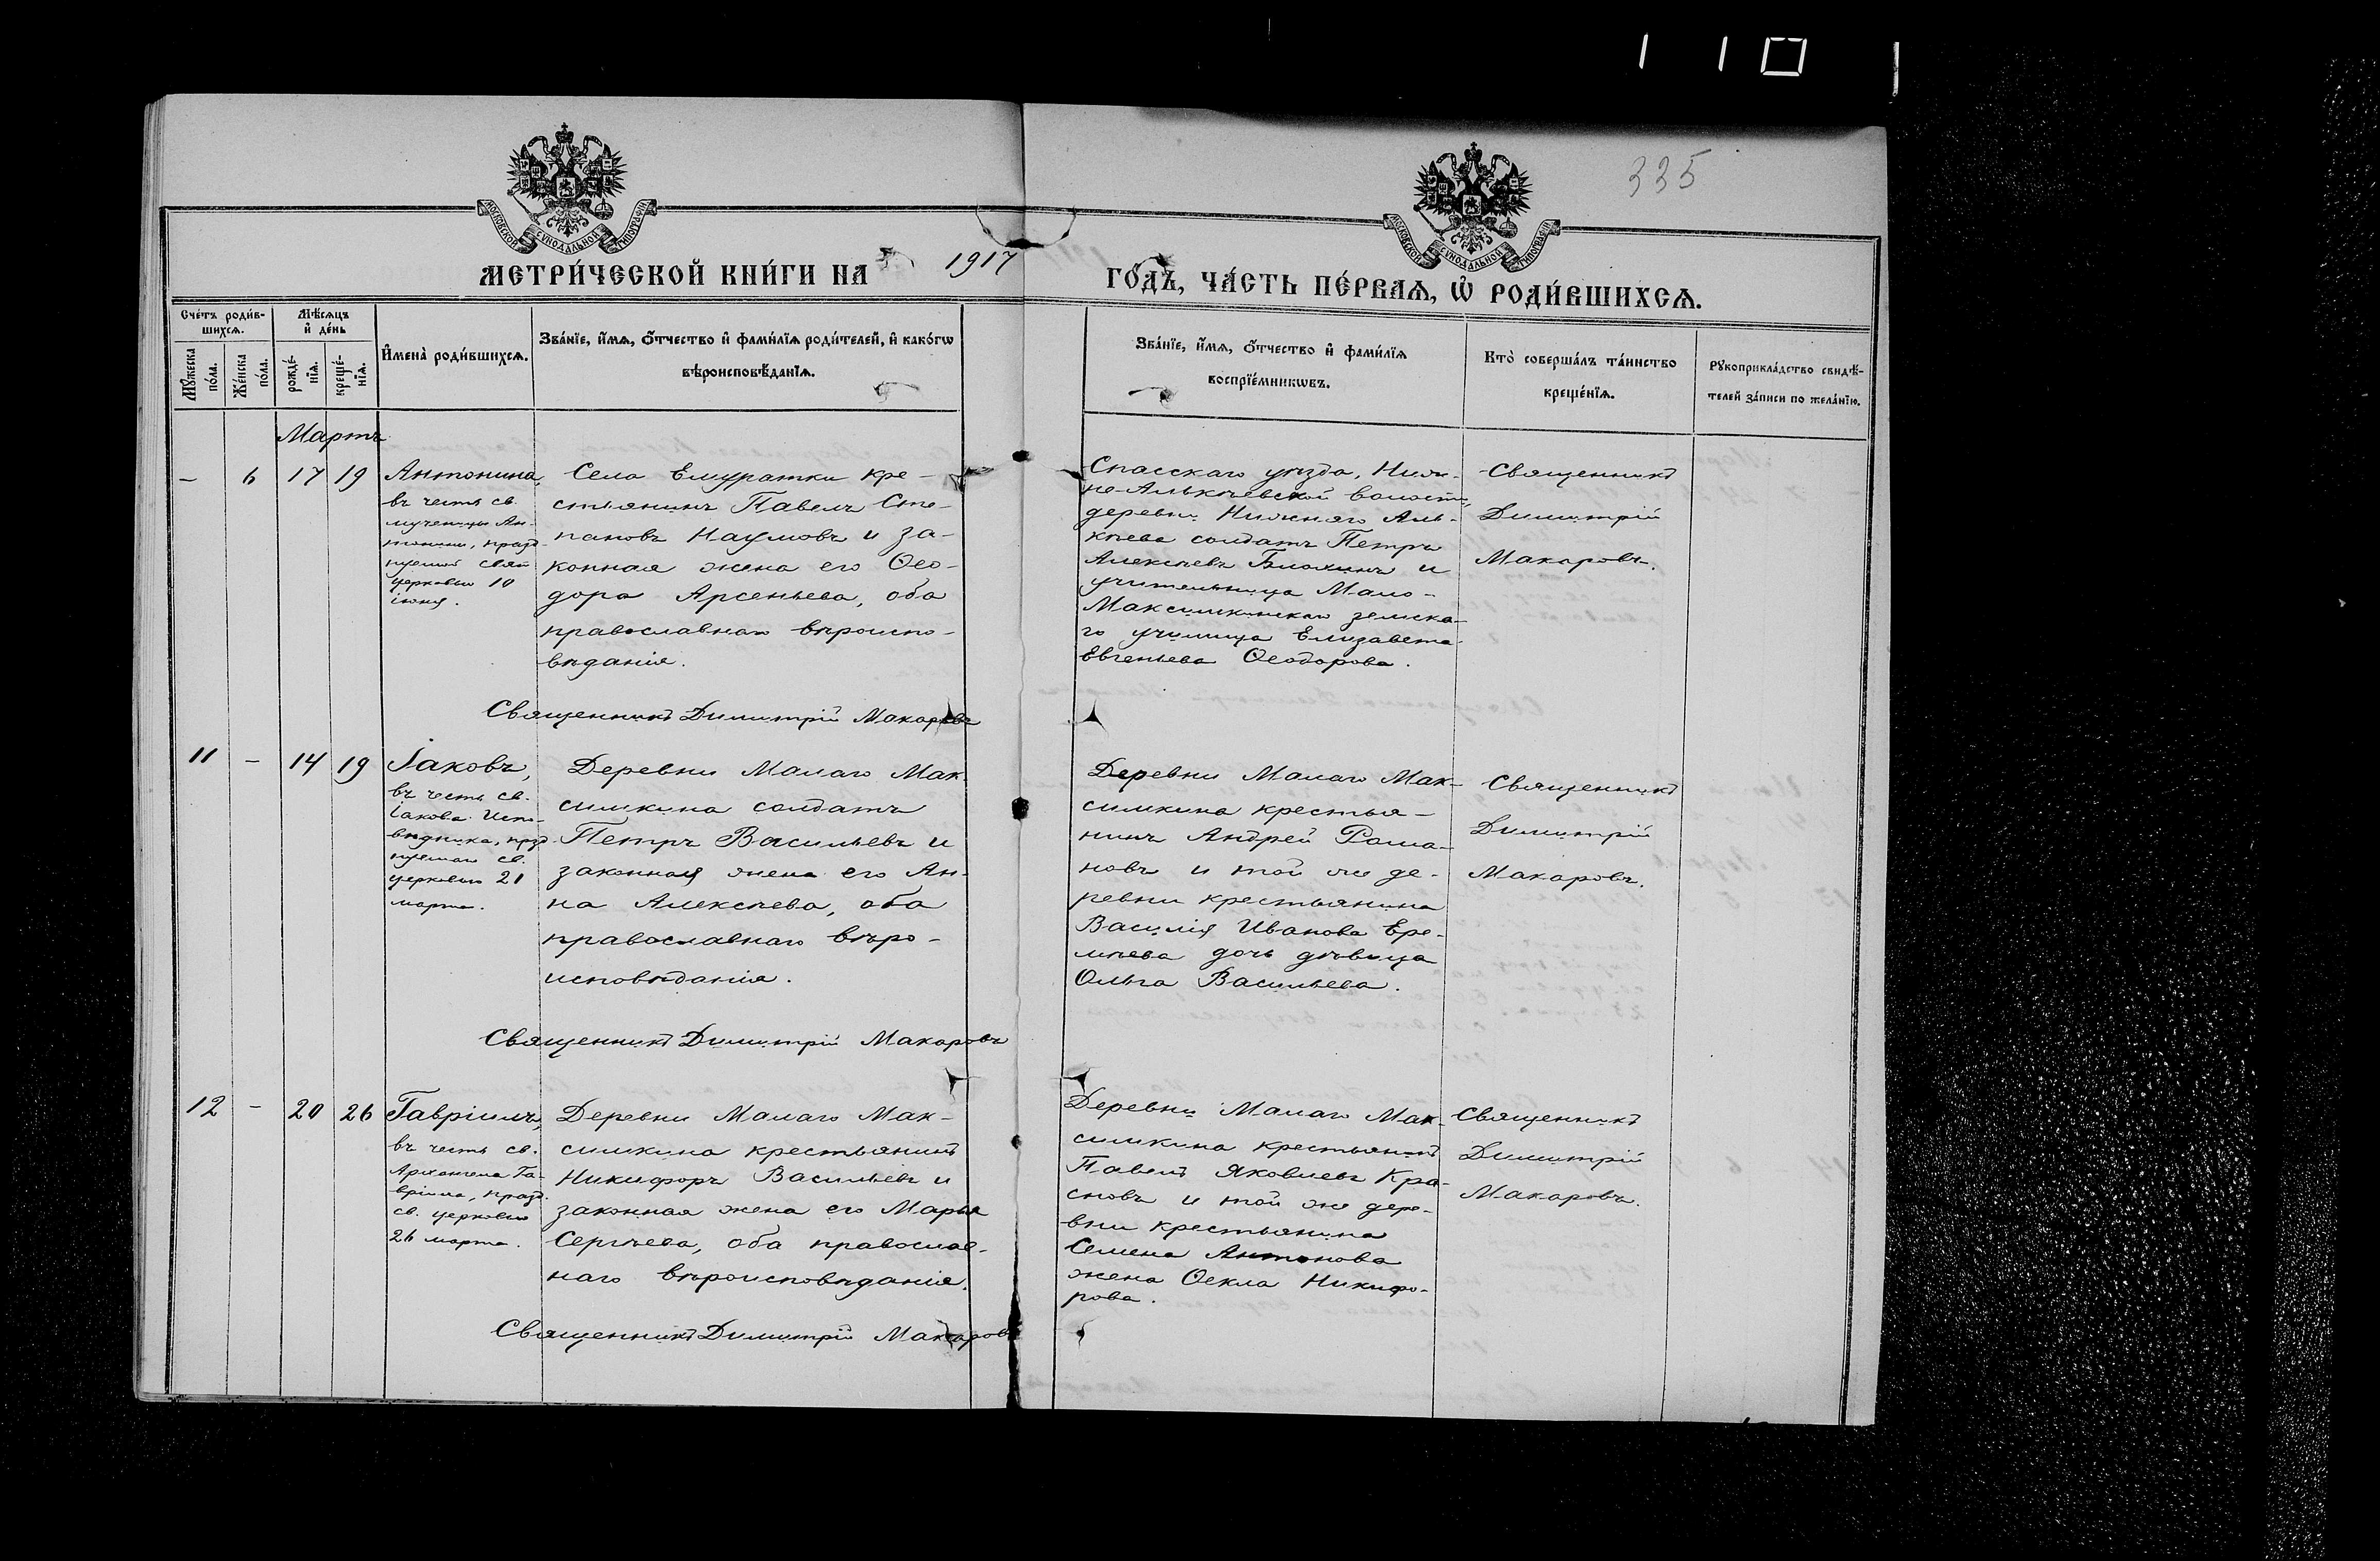 335
МОСКОВСКОЙ СѴНОДАЛЬНОЙ ТИПОГРАФІИ
МОСКОВСКОЙ СѴНОДАЛЬНОЙ ТИПОГРАФІИ
МЕТРИ́ЧЕСКОЙ КНИ́ГИ НА 1917 ГО́ДЪ, ЧА́СТЬ ПЕ́РВАѦ, Ѡ҆ РОДИ́ВШИХСѦ.
Сче́тъ роди́в-
шихсѧ.
Мꙋ́жеска
по́ла.
Же́нска
по́ла.
Мѣ́сѧцъ
и҆ де́нь
рожде́-
нїѧ.
креще́-
нїѧ.
И҆мена̀ роди́вшихсѧ.
Зва́нїе, и҆́мѧ, ѻ҆́тчество и҆ фами́лїѧ роди́телей, и҆ како́гѡ
вѣроисповѣ́данїѧ.
Зва́нїе, и҆́мѧ, ѻ҆́тчество и҆ фами́лїѧ
воспрїе́мникѡвъ.
Кто̀ соверша́лъ та́инство
креще́нїѧ.
Рꙋкоприкла́дство свидѣ́-
телей за́писи по жела́нїю.
Мартъ
– 6 17 19
Антонина,
въ честь св.
мученицы Ан-
тонины, празд-
нуемой свят.
церковью 10
іюня.
Села Емуратки кре-
стьянинъ Павелъ Сте-
пановъ Наумовъ и за-
конная жена его Ѳео-
дора Арсеньева, оба
православнаго вѣроиспо-
вѣданія.
Спасскаго уѣзда, Ниж-
не-Алькѣевской волости,
деревни Нижняго Аль-
кѣева солдатъ Петръ
Алексѣевъ Блохинъ и
учительница Мало-
Максимкинскаго земска-
го училища Елизавета
Евгеньева Ѳеодорова.
Священникъ
Димитрій
Макаровъ.
Священникъ Димитрій Макаровъ
11 – 14 19
Іаковъ,
въ честь св.
Іакова Испо-
вѣдника, празд-
нуемаго св.
церковью 21
марта.
Деревни Малаго Мак-
симкина солдатъ
Петръ Васильевъ и
законная жена его Ан-
на Алексѣева, оба
православнаго вѣро-
исповѣданія.
Деревни Малаго Мак-
симкина крестья-
нинъ Андрей Рома-
новъ и той же де-
ревни крестьянина
Василія Иванова Ере-
мѣева дочь дѣвица
Ольга Васильева.
Священникъ
Димитрій
Макаровъ.
Священникъ Димитрій Макаровъ
12 – 20 26
Гавріилъ,
въ честь св.
Архангела Га-
вріила, празд.
св. церковью
26 марта.
Деревни Малаго Мак-
симкина крестьянинъ
Никифоръ Васильевъ и
законная жена его Марья
Сергѣева, оба православ-
наго вѣроисповѣданія.
Деревни Малаго Мак-
симкина крестьянинъ
Павелъ Яковлевъ Кра-
сновъ и той же дере-
вни крестьянина
Семена Антонова
жена Ѳекла Никифо-
рова.
Священникъ
Димитрій
Макаровъ.
Священникъ Димитрій Макаровъ